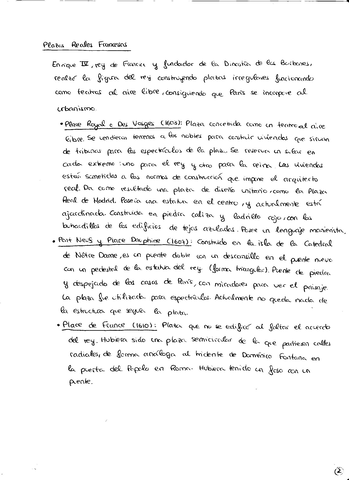 Plazas Reales Francesas
Enrique IV, rey de Francia y fundador de la Dinastía de los Borbones,
realzó la figura del rey construyendo plazas irregulares funcionando
como teatros al aire libre, consiguiendo que París se incorpore al
urbanismo.
• Place Royal o Des Vosges (1605): Plaza concebida como un teatro al aire
libre. Se vendieron terrenos a los nobles para construir viviendas que sirvieran
de tribunas para los espectáculos de la plaza. Se reservan un solar en
cada extremo: uno para el rey y otro para la reina. Las viviendas
están sometidas a las normas de construcción que impone el arquitecto
real. Da como resultado una plaza de diseño unitario, como la Plaza
Real de Madrid. Poseía una estatua en el centro, y actualmente está
ajardinada. Construida en piedra caliza y ladrillo rojo, con las
buhardillas de los edificios de tejas azuladas. Posee un lenguaje manierista.
• Pont Neuf y Place Dauphine (1607): Construido en la isla de la Catedral
de Nôtre Dame, es un puente doble con un descansillo en el puente nuevo
con un pedestal de la estatua del rey (forma triangular). Puente de piedra
y despejado de las casas de París, con miradores para ver el paisaje.
La plaza fue utilizada para espectáculos. Actualmente no queda nada de
la estructura que seguía la plaza.
• Place de France (1610): Plaza que no se edificó al faltar el acuerdo
del rey. Hubiera sido una plaza semicircular de la que partiesen calles
radiales, de forma análoga al tridente de Doménico Fontana en
la puerta del Popolo en Roma. Hubiera tenido un foso con un
puente.
2